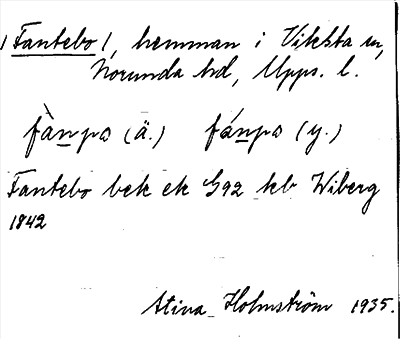 /Fantebo/, hemman i Viksta sn,
Norunda hd, Upps. l.
fànpo (ä.) fánpo (y.)
Fantebo bek ek G92 kb Wiberg
1842
Stina Holmström 1935.